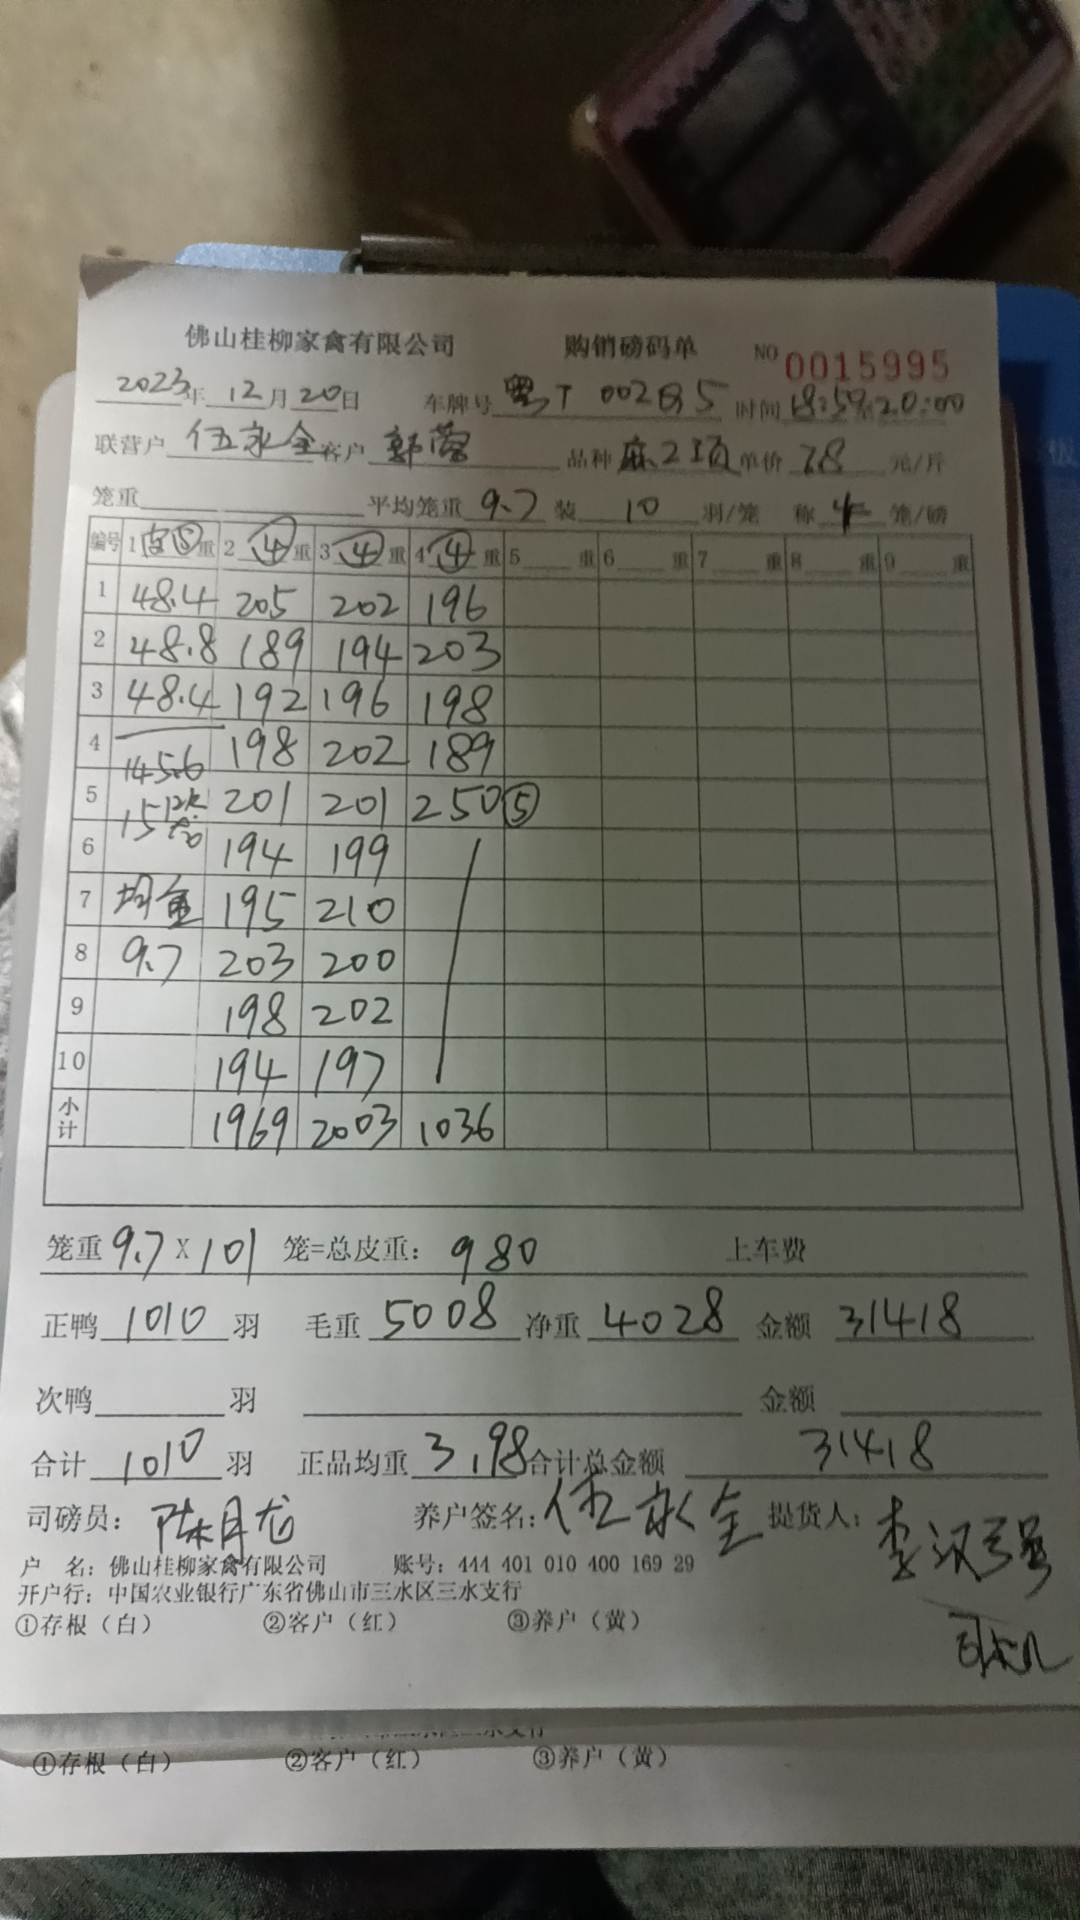 佛山桂柳家禽有限公司 购销磅码单 NO 0015995
2023年12月20日 车牌号 粤T 002 5 时间 18:59 20:00
联营户 伍永全 客户 郭 品种 麻2项 单价 7.8 元/斤
笼重 平均笼重 9.7 装 10 羽/笼 称 4 笼/磅
编号 1 皮⑤重 2 ④重 3 ④重 4 ④重 5 重 6 重 7 重 8 重 9 重
1 48.4 205 202 196
2 48.8 189 194 203
3 48.4 192 196 198
4 145.6 198 202 189
5 15 201 201 250⑤
6 194 199
7 均重 195 210
8 9.7 203 200
9 198 202
10 194 197
小计 1969 2003 1036
笼重 9.7×101 笼=总皮重: 980 上车费
正鸭 1010 羽 毛重 5008 净重 4028 金额 31418
次鸭 羽 金额
合计 1010 羽 正品均重 3.98 合计总金额 31418
司磅员: 陈月龙 养户签名: 伍永全 提货人: 李汉强
户 名: 佛山桂柳家禽有限公司 账号: 444 401 010 400 169 29
开户行: 中国农业银行广东省佛山市三水区三水支行
司机
①存根（白） ②客户（红） ③养户（黄）
①存根（白） ②客户（红） ③养户（黄）